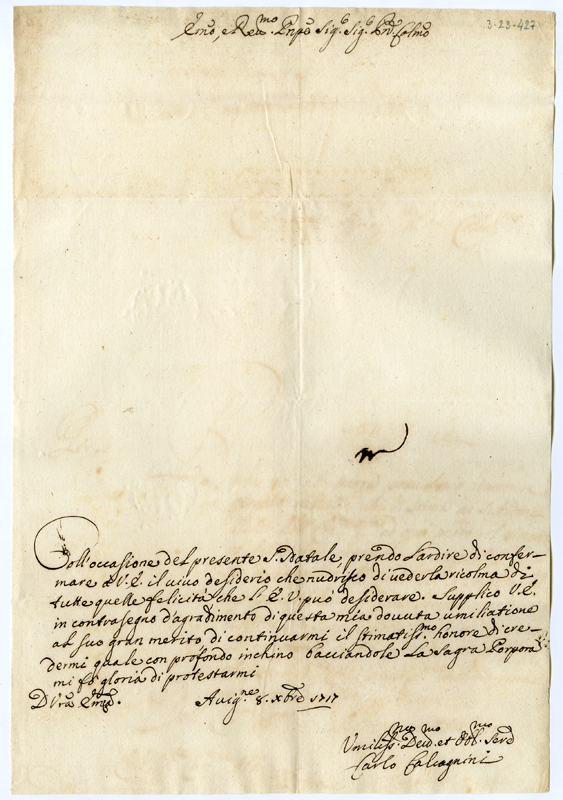 Emo, e Reumo. Pnpe Sigr. Sigr. Pne. Colmo
3-23-427
Coll'occasione del presente S. Natale, prendo l'ardire di confer-
mare à V.E. il uiuo desiderio che nudrisco di uederla ricolma di
tutte quelle felicità che l'E.V. può desiderare. Supplico V.E.
in contrasegno d'agradimento di questa mia douuta umiliatione
al suo gran merito di continuarmi il stimatissmo. honore di cre-
dermi quale con profondo inchino bacciandole La Sagra Porpora
mi fò gloria di protestarmi
D Vra Emza.
Auigne. 8. Xbre 1717
Vmilissmo. Deuomo. et Obbmo. Serre
Carlo Calcagnini